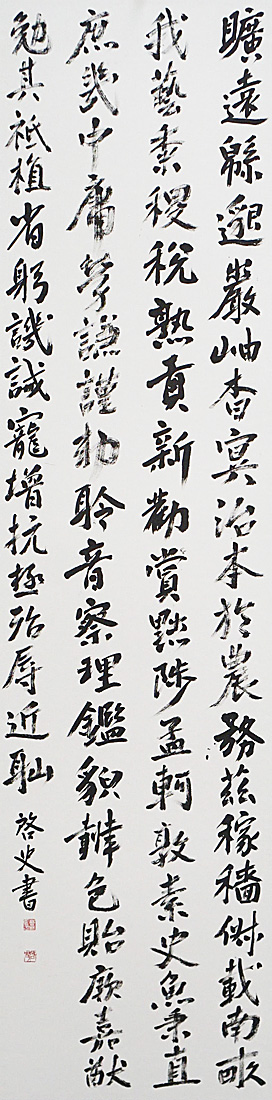 曠遠緜邈巖岫杳冥治本於農務茲稼穡俶載南畝
我藝黍稷稅熟貢新勸賞黜陟孟軻敦素史魚秉直
庶幾中庸勞謙謹勅聆音察理鑑貌辨色貽厥嘉猷
勉其祗植省躬譏誡寵增抗極殆辱近耻
啓史書